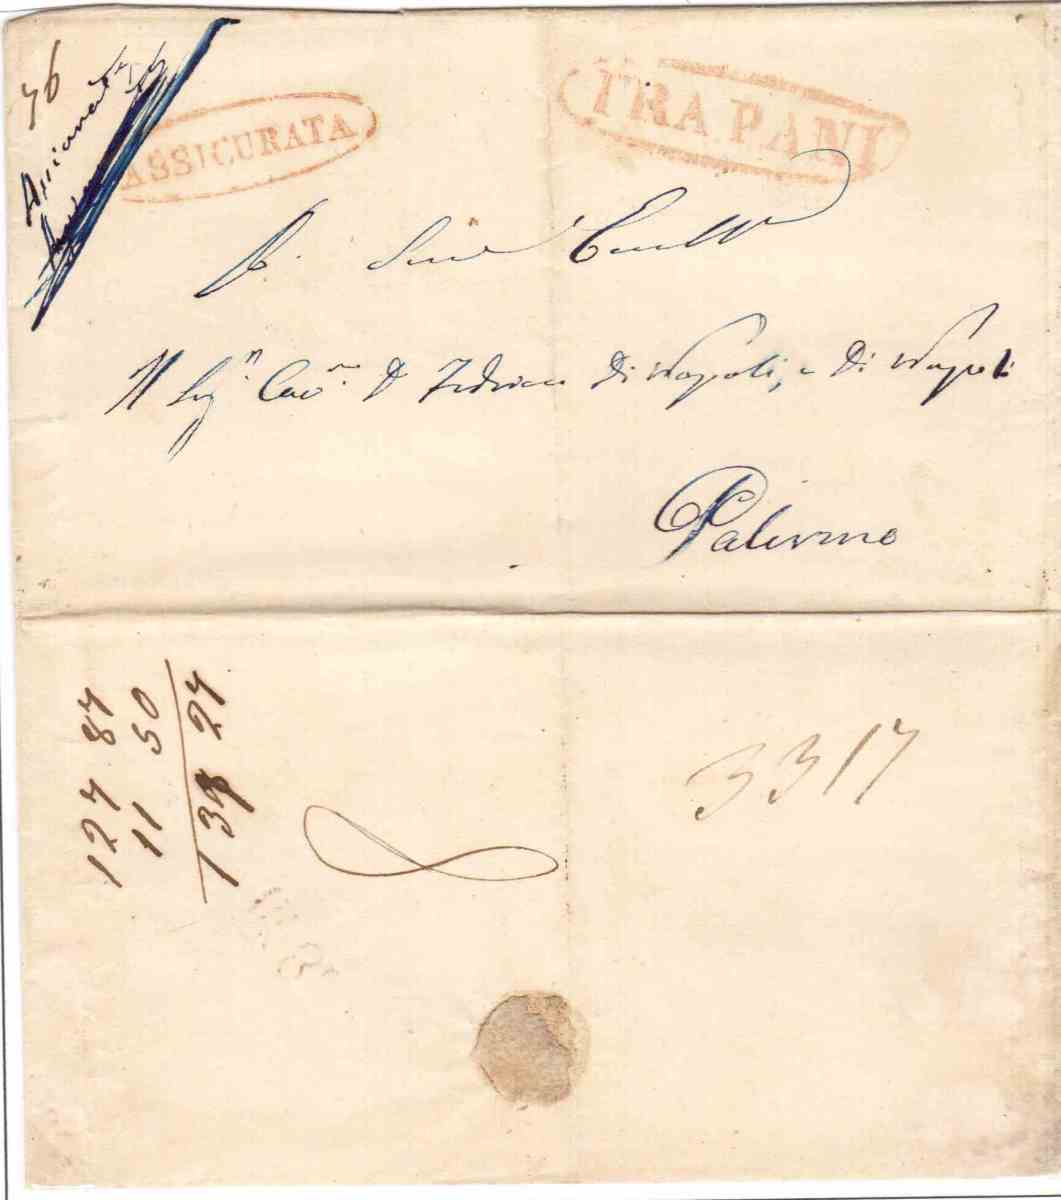 76
Assicurata
ASSICURATA
TRAPANI
A. Sua Eccell
Il Sig.n Cav.re D Federico Di Napoli, e Di Napoli
Palermo
127 87
11 50
139 27
3317